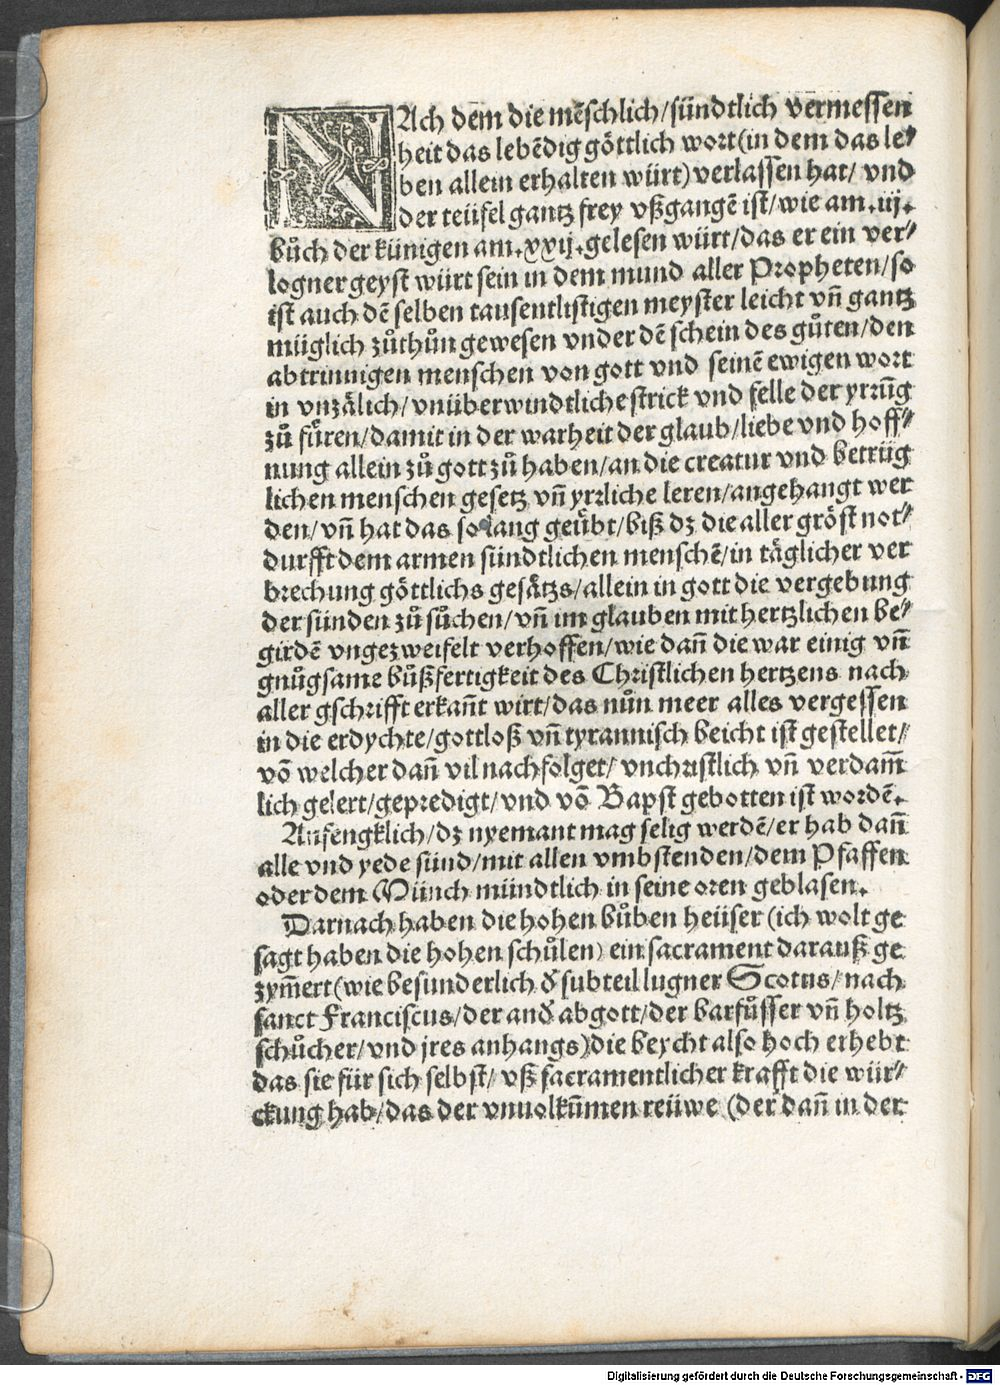 NAch dem die mēschlich/sündtlich vermessen
heit das lebēdig göttlich wort(in dem das le⸗
ben allein erhalten würt)verlassen hat/ vnd
der teüfel gantz frey vßgangē ist/wie am.iij.
bůch der künigen am.xxij.gelesen würt/das er ein ver⸗
logner geyst würt sein in dem mund aller Propheten/so
ist auch dē selben tausentlistigen meyster leicht vñ gantz
müglich zůthůn gewesen vnder dē schein des gůten/den
abtrinnigen menschen von gott vnd seinē ewigen wort
in vnzälich/vnüberwindtliche strick vnd felle der yrrūg
zů fůren/damit in der warheit der glaub/liebe vnd hoff⸗
nung allein zů gott zů haben/an die creatur vnd betrüg
lichen menschen gesetz vñ yrrliche leren/angehangt wer
den/vñ hat das so lang geübt/biß dz die aller gröst not⸗
durfft dem armen sündtlichen menschē/in täglicher ver
brechung göttlichs gesätzs/allein in gott die vergebung
der sünden zů sůchen/vñ im glauben mit hertzlichen be⸗
girdē vngezweifelt verhoffen/wie dañ die war einig vñ
gnůgsame bůßfertigkeit des Christlichen hertzens nach
aller gschrifft erkañt wirt/das nůn meer alles vergessen
in die erdychte/gottloß vñ tyrannisch beicht ist gestellet/
vō welcher dañ vil nachfolget/vnchristlich vñ verdam̄
lich gelert/gepredigt/vnd vō Bapst gebotten ist wordē.
Anfengklich/dz nyemant mag selig werdē/er hab dañ
alle vnd yede sünd/mit allen vmbstenden/dem Pfaffen
oder dem Münch mündtlich in seine oren geblasen.
Darnach haben die hohen bůben heüser (ich wolt ge
sagt haben die hohen schůlen) ein sacrament darauß ge
zym̄ert(wie besunderlich ð subteil lugner Scotus/nach
sanct Franciscus/der anð abgott/der barfůsser vñ holtz
schůcher/vnd jres anhangs)die beycht also hoch erhebt
das sie für sich selbst/ vß sacramentlicher krafft die wür⸗
ckung hab/das der vnuolkūmen reüwe (der dañ in der
Digitalisierung gefördert durch die Deutsche Forschungsgemeinschaft - DFG